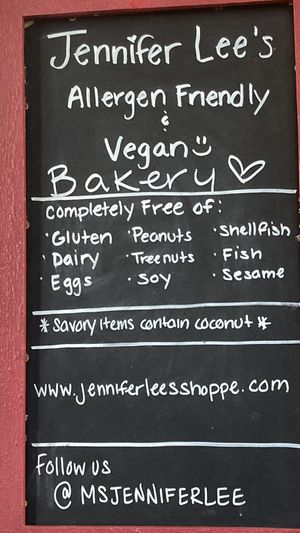 Jennifer Lee's
Allergen Friendly
&
Vegan
Bakery
Completely Free of:
· Gluten · Peanuts · Shellfish
· Dairy · Treenuts · Fish
· Eggs · Soy · Sesame
* Savory Items contain coconut *
www.jenniferleesshoppe.com
Follow us
@ MSJENNIFERLEE